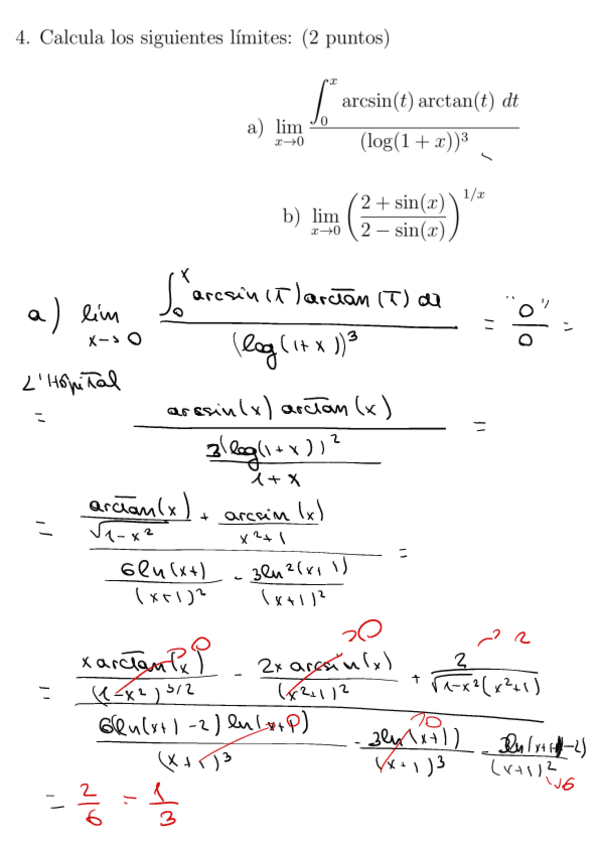 4. Calcula los siguientes límites: (2 puntos)
a) lim_{x→0} \frac{∫_0^x arcsin(t) arctan(t) dt}{(log(1 + x))^3}
b) lim_{x→0} (\frac{2 + sin(x)}{2 − sin(x)})^{1/x}
a) lim_{x→0} \frac{∫_0^x arcsin(T) arctan(T) dt}{(log(1+x))^3} = "\frac{0}{0}" =
L'Hôpital
= \frac{arcsin(x) arctan(x)}{\frac{3(log(1+x))^2}{1+x}} =
= \frac{\frac{arctan(x)}{\sqrt{1-x^2}} + \frac{arcsin(x)}{x^2+1}}{\frac{6ln(x+)}{(x+1)^2} - \frac{3ln^2(x+1)}{(x+1)^2}} =
= \frac{\frac{x arctan(x)}{(1-x^2)^{3/2}} - \frac{2x arcsin(x)}{(x^2+1)^2} + \frac{2}{\sqrt{1-x^2}(x^2+1)}}{\frac{6ln(x+1-2)ln(x+1)}{(x+1)^3} - \frac{3ln(x+1))}{(x+1)^3} - \frac{-2)}{(x+1)^2}}
→0 →0 → 2
→0 →0 →6
= \frac{2}{6} = \frac{1}{3}